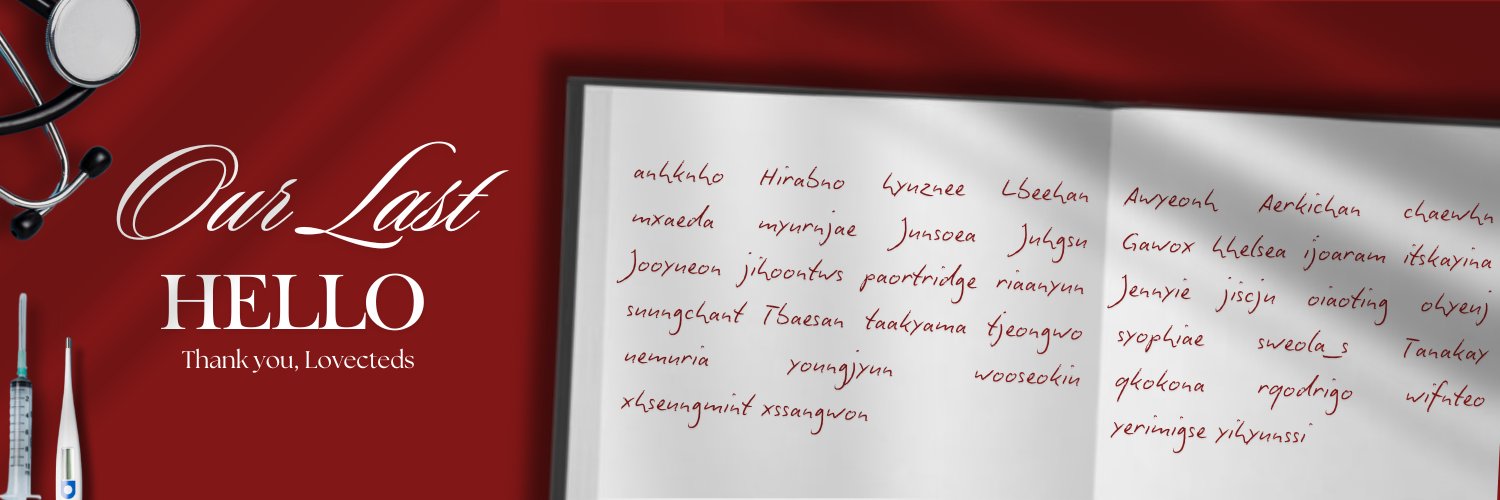 Our Last
HELLO
Thank you, Lovecteds
anhknho Hirabno hyuznee Lbeehan
mxaeda myurnjae Junsoea Juhgsu
Jooyueon jihoontws paortridge riaanyun
suungchant Tbaesan taakyama tjeongwo
uemuria youngjyun wooseokin
xhseungmint xssangwon
Awyeonh Aerkichan chaewhn
Gawox hhelsea ijoaram itskayina
Jennyie jiscju oiaoting ohyenj
syophiae sweola_s Tanakay
qkokona rqodrigo wifnteo
yerimigse yihyunssi